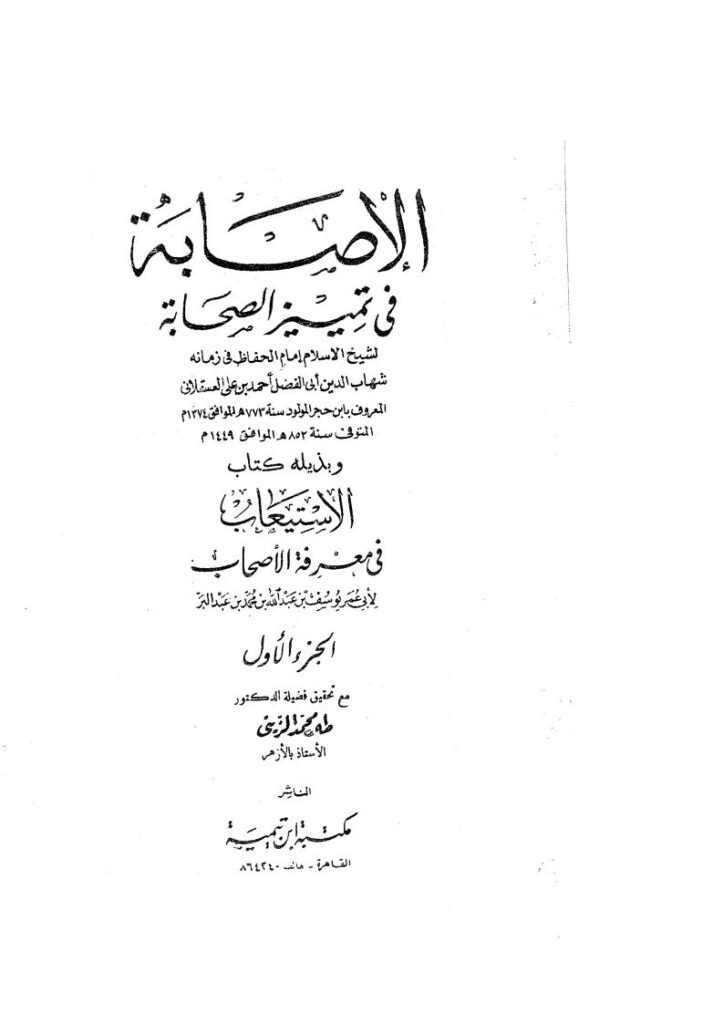 الإصابة
في تمييز الصحابة
لشيخ الاسلام إمام الحفاظ في زمانه
شهاب الدين أبي الفضل أحمد بن علي العسقلاني
المعروف بابن حجر المولود سنة ٧٧٣ ه‍ الموافق ١٣٧٤ م
المتوفى سنة ٨٥٢ ه‍ الموافق ١٤٤٩ م
وبذيله كتاب
الاستيعاب
في معرفة الأصحاب
لأبي عمر يوسف بن عبد الله بن محمد بن عبد البر
الجزء الأول
مع تحقيق فضيلة الدكتور
طه محمد الزيني
الأستاذ بالأزهر
الناشر
مكتبة ابن تيمية
القاهرة - هاتف ٨٦٤٢٤٠